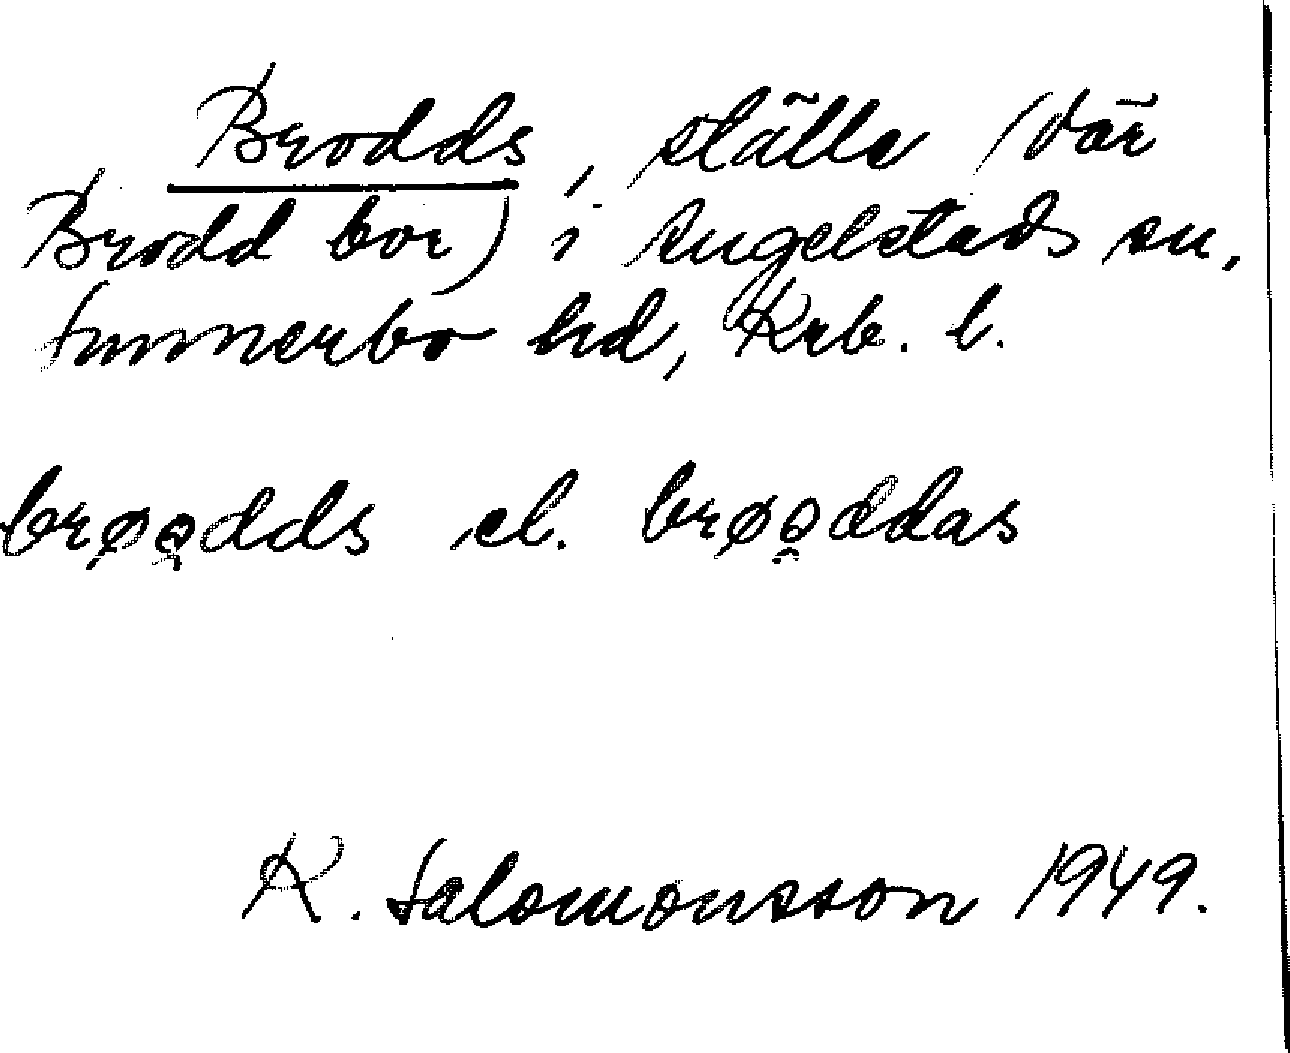 Brodds, ställe (där
Brodd bor) i Angelstads sn,
Sunnerbo hd, Krb. l.
brøo̧dds el. brøo̯ddas
K. Salomonsson 1949.